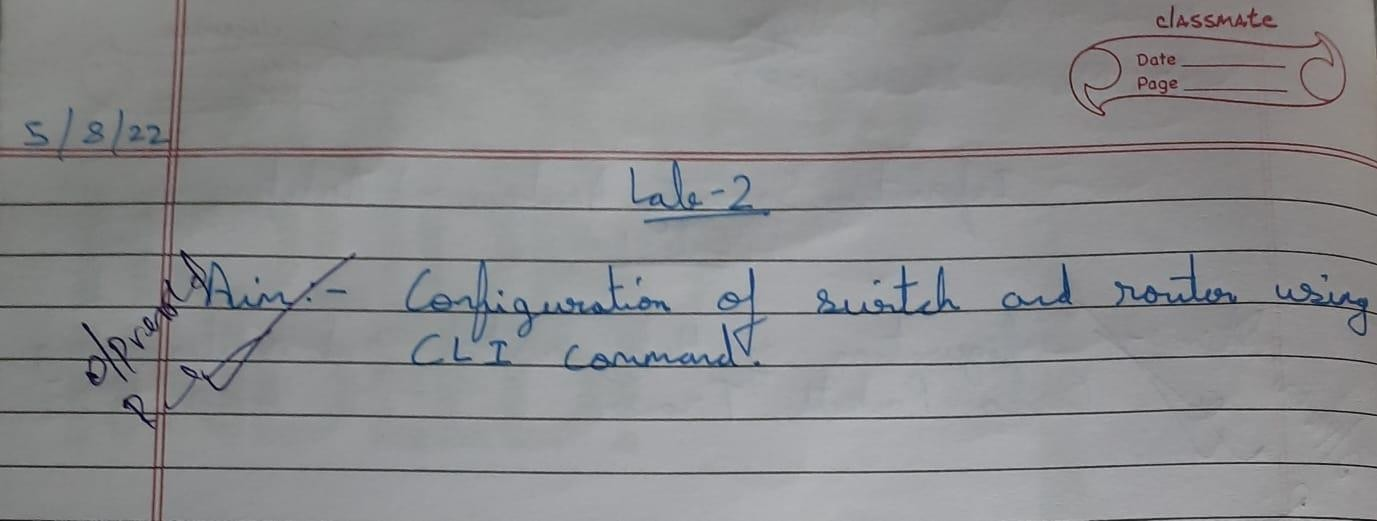 classmate
Date
Page
5/8/22
Lab-2
Aim:- Configuration of switch and router using
CLI command.